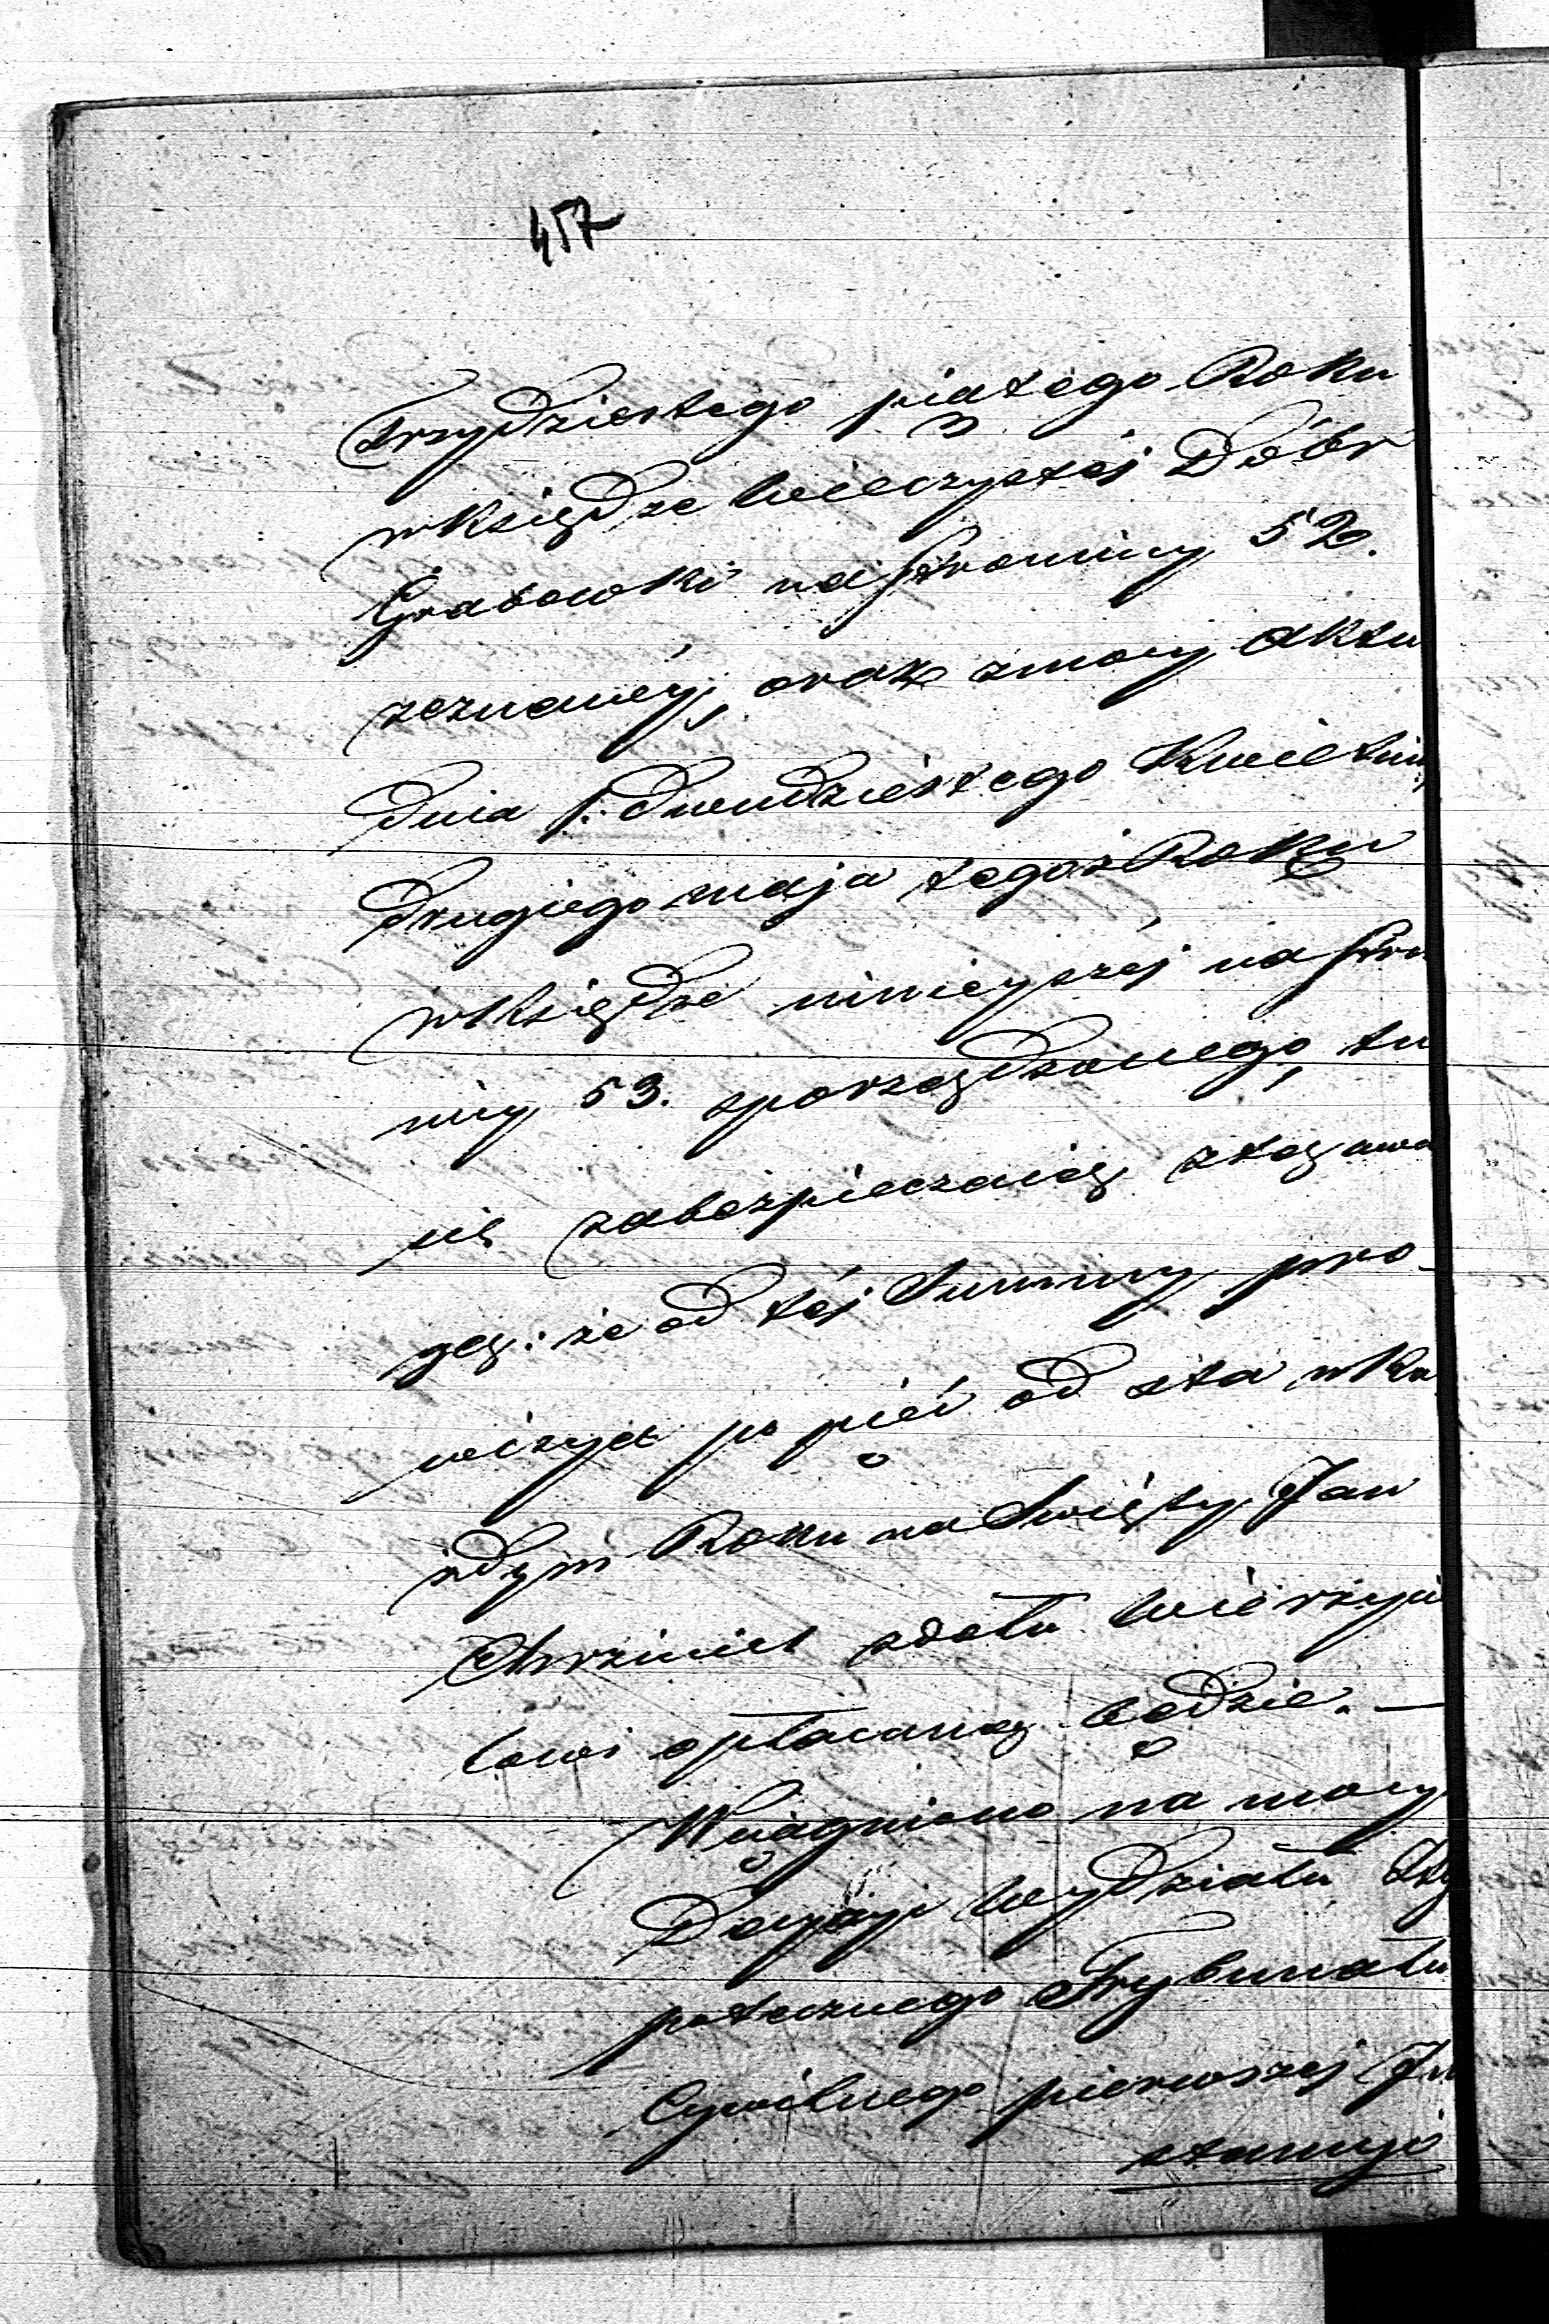 457
Trzydziestego piątego Roku
w Księdze wieczystéj Dóbr
Grabowki na stronicy 52.
zeznanéy, oraz z mocy Aktu
dnia /: dwudziestego Kwietnia
drugiego maja tegoż Roku
w Księdze ninieyszéj na stro
nicy 53. sporządzonego, tu
się zabezpieczaią z tą uwa
gą: że od téj Summy pro-
wizya po pięć od sta w Ka
żdym Roku na Święty Jan
Chrzciciel zdołu Wierzycie
lowi opłacaną będzie. —
Wciągniono na mocy
Decyzyi Wydziału Hy
potecznego Trybunału
Cywilnego pierwszej In
stancyi